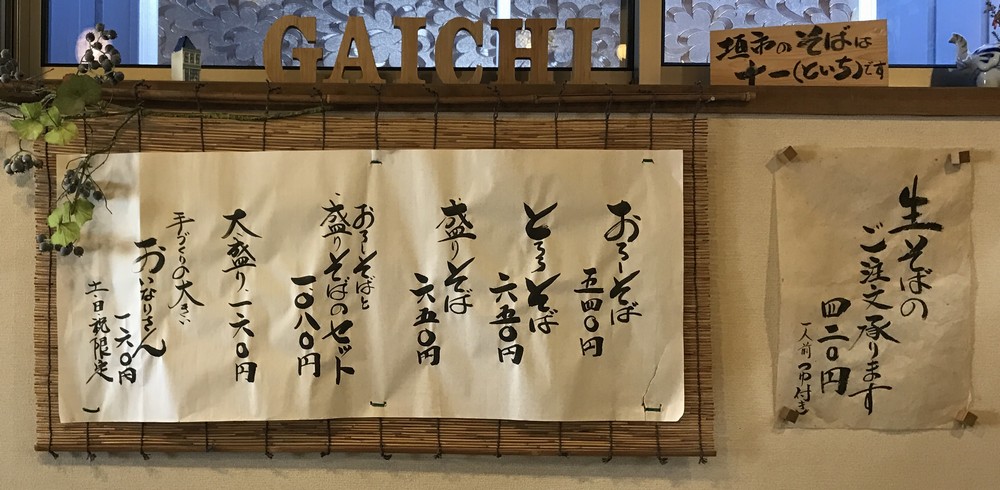 GAICHI
垣市のそばは
十一(といち)です
おろしそば
五四〇円
とろろそば
六五〇円
盛りそば
六五〇円
おろしそばと
盛りそばのセット
一〇八〇円
大盛り、一六〇円
手づくりの大きい
おいなりさん
一六〇円
土、日、祝限定
生そばの
ご注文承ります
四二〇円
一人前 つゆ付き